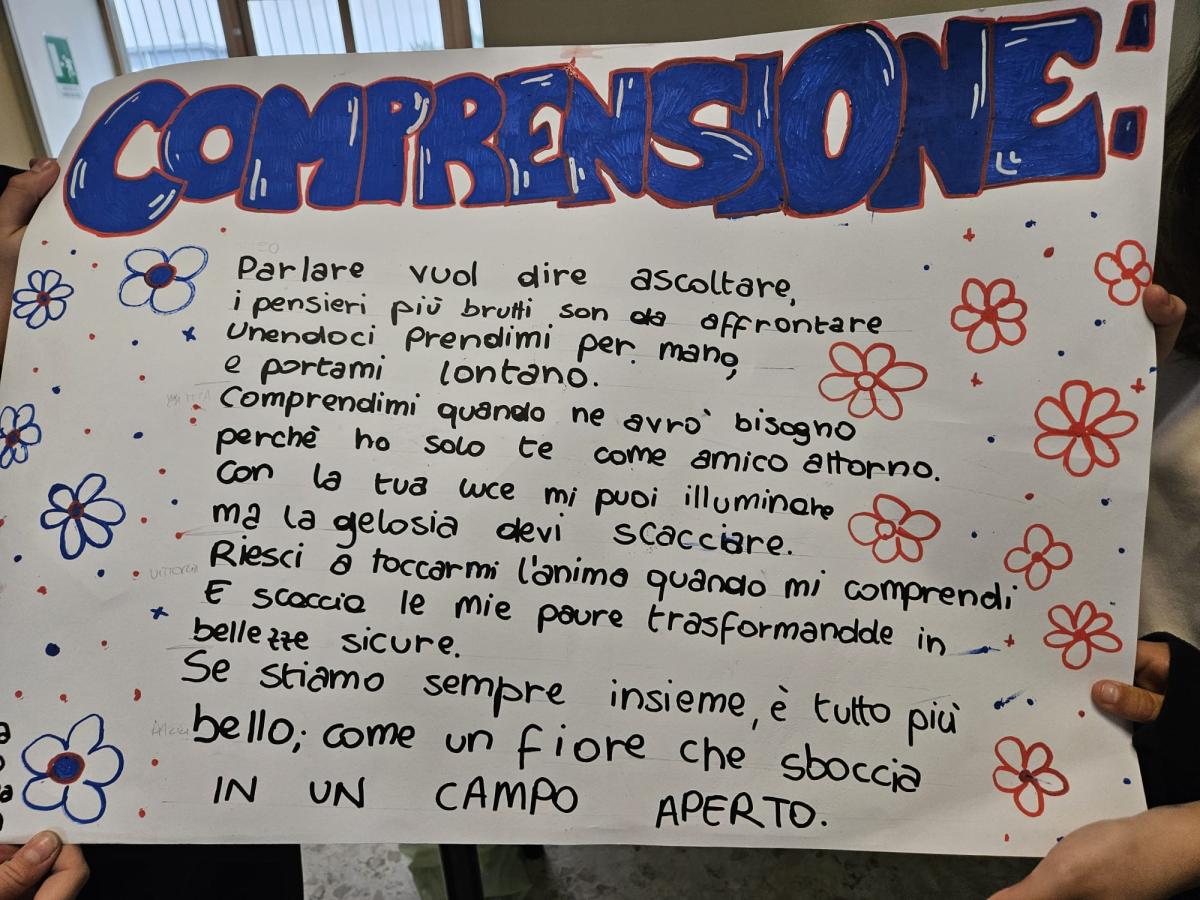 COMPRENSIONE:
Parlare vuol dire ascoltare,
i pensieri più brutti son da affrontare
Unendoci prendimi per mano,
e portami lontano.
Comprendimi quando ne avro' bisogno
perchè ho solo te come amico attorno.
con la tua luce mi puoi illuminare
ma la gelosia devi scacciare.
Riesci a toccarmi l'anima quando mi comprendi
E scaccia le mie paure trasformandole in
bellezze sicure.
Se stiamo sempre insieme, è tutto più
bello; come un fiore che sboccia
IN UN CAMPO APERTO.